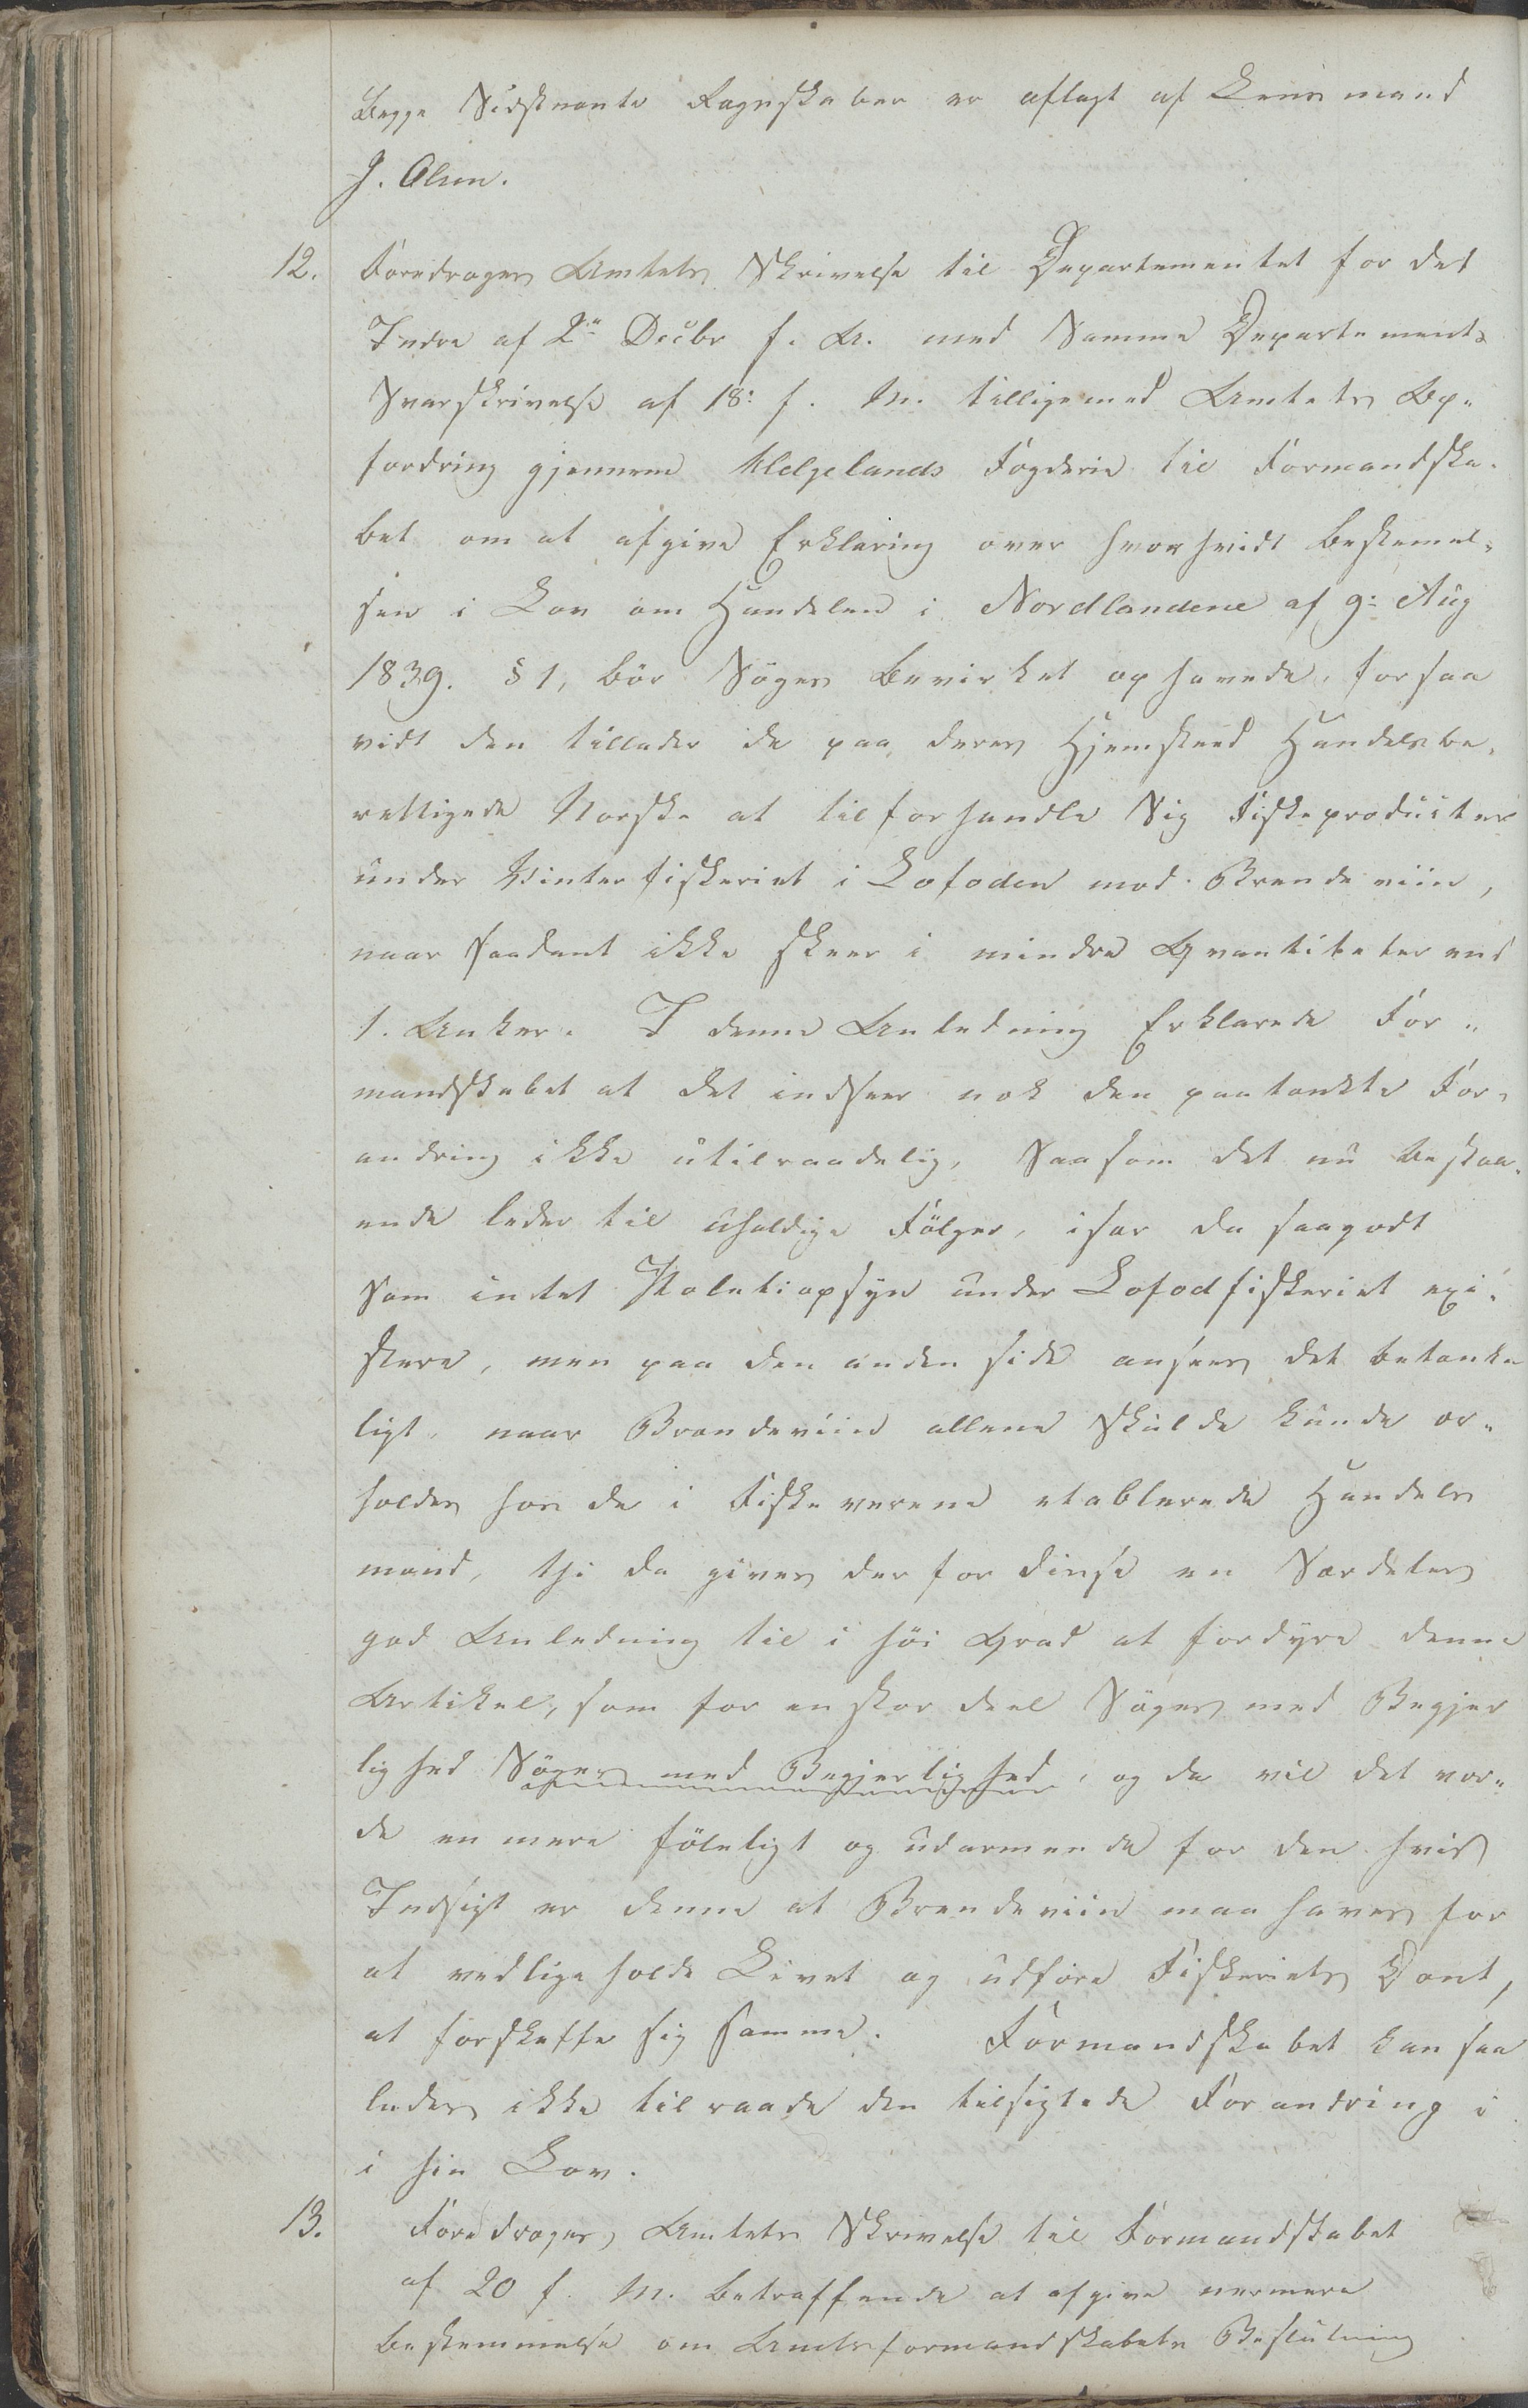 Begge Sidstnente Ragnskaber er aflagt af Lensmand
J. Olsen.
12. Foredroges Amtets Skrivelse til Departementet for det
Indre af 2den Decbr f. A. med Samme Departements
Svarskrivelse af 18: f. M. tilligemed Amtets Op-
fordring gjennem Helgelands Fogderie til Formandska-
bet om at afgive Erklæring over hvorhvidt bestemel-
sen i Lov om Handelen i Nordlandene af 9: Aug
1839. § 1, bör Söges bevirket ophævede, forsaa
vidt den tillader de paa deres Hjemsteed Handelsbe-
rettigede Norske at tilforhandle Sig Fiskeproducter
under Vinterfiskeriet i Lofoden mod Brændeviin,
naar saadant ikke skeer i mindre Qvantiteter end
1. Anker. I denne Anledning Erklærede For-
mandskabet at det indseer nok den paatænkte For-
andring ikke utilraadelig, Saasom det nu bestaa-
ende leder til uheldige Fölger, især da saagodt
Som intet Politiopsyn under Lofodfiskeriet exi-
stere, men paa den anden side ansees det betænke
ligt, naar Brændeviin allene Skulde kunde er-
holdes hos de i Fiskeværene etablerede Handels
mænd, thi da gives der for disse en Særdeles
god Anledning til i höi Grad at fordyre denne
Artikel, som for en stor deel Söges med Begjer
lighed Söges med Begjerlighed, og da vil det vor-
de en mere föleligt og udarmende for den hvis
Indsigt er denne at Brændeviin maa haves for
at vedligeholde Livet og udföre Fiskeriets Dont,
at forskaffe sig samme. Formandskabet kan saa
ledes ikke tilraade den tilsigtede Forandring i
i hin Lov.
13. Foredroges Amtets Skrivelse til Formandskabet
af 20 f. M. betræffende at afgive nermere
bestemmelse om Amtsformandskabets Beslutning